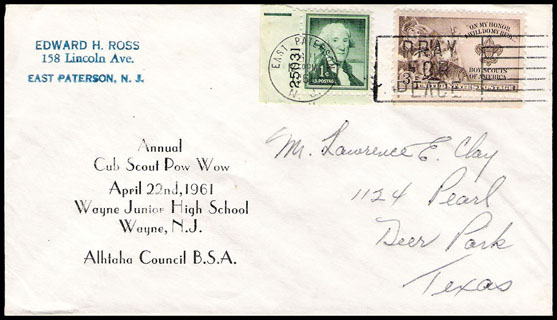 EDWARD H. ROSS
158 Lincoln Ave.
EAST PATERSON, N. J.
EAST PATERSON
N. J.
25031
1¢
U.S. POSTAGE
PRAY
FOR
PEACE
ON MY HONOR
I WILL DO MY BEST
BOY SCOUTS
OF AMERICA
3¢
STATES POSTAGE
Annual
Cub Scout Pow Wow
April 22nd,1961
Wayne Junior High School
Wayne, N.J.
Alhtaha Council B.S.A.
Mr. Lawrence E. Clay
1124 Pearl
Deer Park
Texas